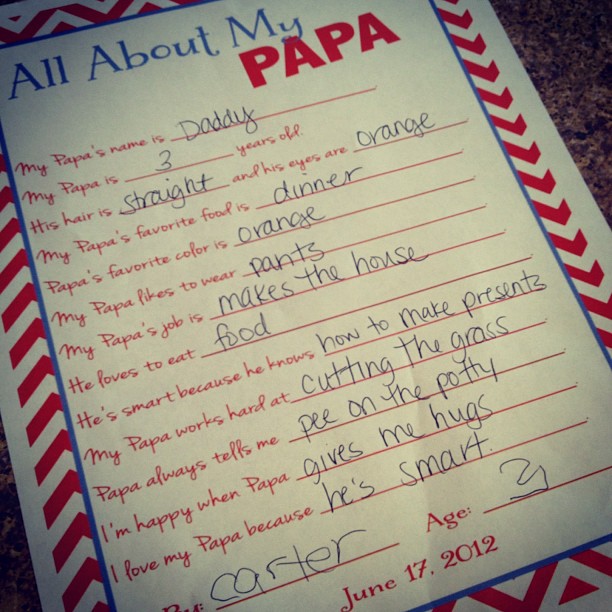 All About My
PAPA
My Papa's name is Daddy
My Papa is 3 years old.
His hair is straight and his eyes are orange
My Papa's favorite food is dinner
Papa's favorite color is orange
My Papa likes to wear pants
My Papa's job is makes the house
He loves to eat food
He's smart because he knows how to make presents
My Papa works hard at cutting the grass
Papa always tells me pee on the potty
I'm happy when Papa gives me hugs
I love my Papa because he's smart.
By: carter Age: 3
June 17, 2012